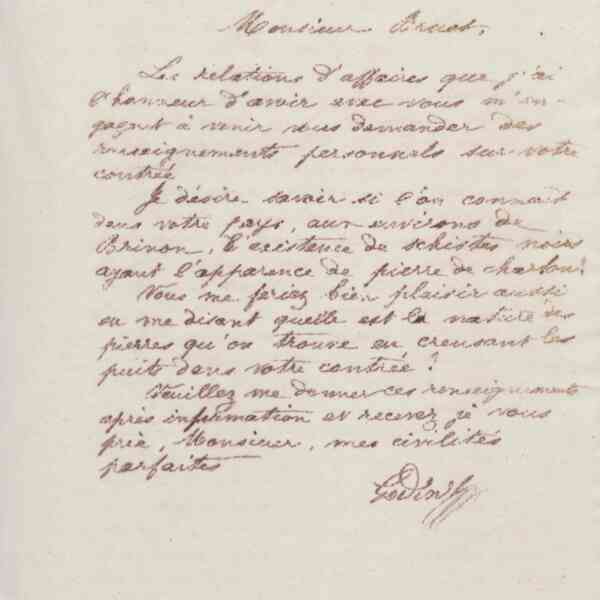 Monsieur Bruat,
Les relations d'affaires que j'ai
l'honneur d'avoir avec vous m'en-
gagent à venir vous demander des
renseignements personnels sur votre
contrée
Je désire savoir si l'on connait
dans votre pays, aux environs de
Brinon, l'existence de schistes noirs
ayant l'apparence de pierre de charbon?
Vous me feriez bien plaisir aussi
en me disant quelle est la nature des
pierres qu'on trouve en creusant les
puits dans votre contrée?
Veuillez me donner ces renseignements
après information et recevez, je vous
prie, Monsieur, mes civilités
parfaites
Godin